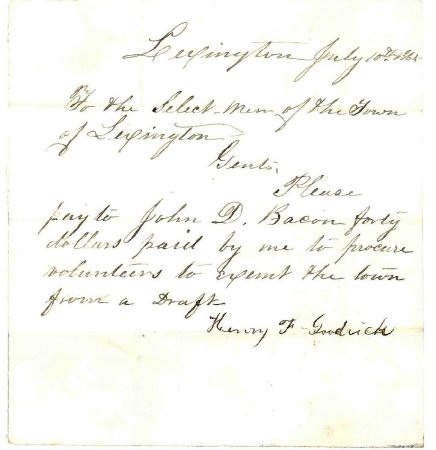 Lexington July 10th 1865
To the Select-Men of the Town
of Lexington
Gents,
Please
pay to John D. Bacon forty
dollars paid by me to procure
volunteers to exemt the town
from a Draft
Henry F. Goodrich